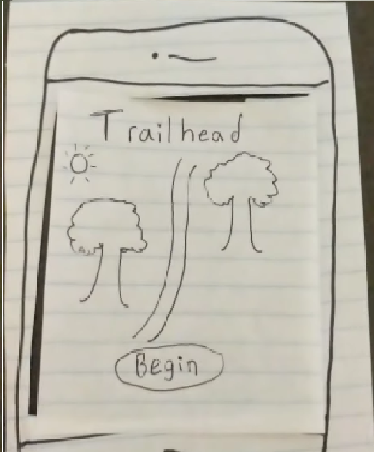 Trailhead
Begin